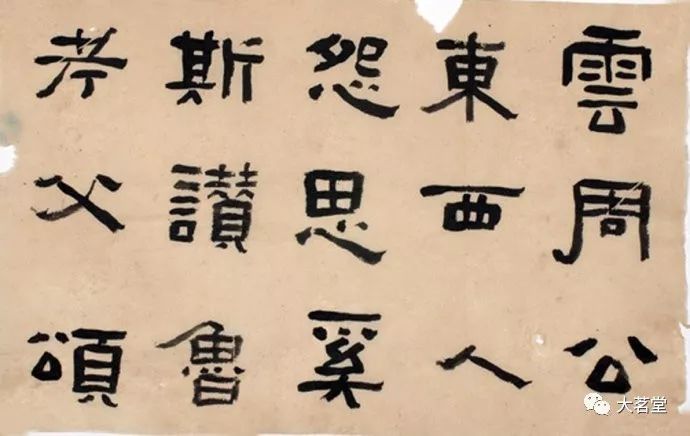 雲周公
東西人
怨思奚
斯讃魯
考父頌
大茗堂